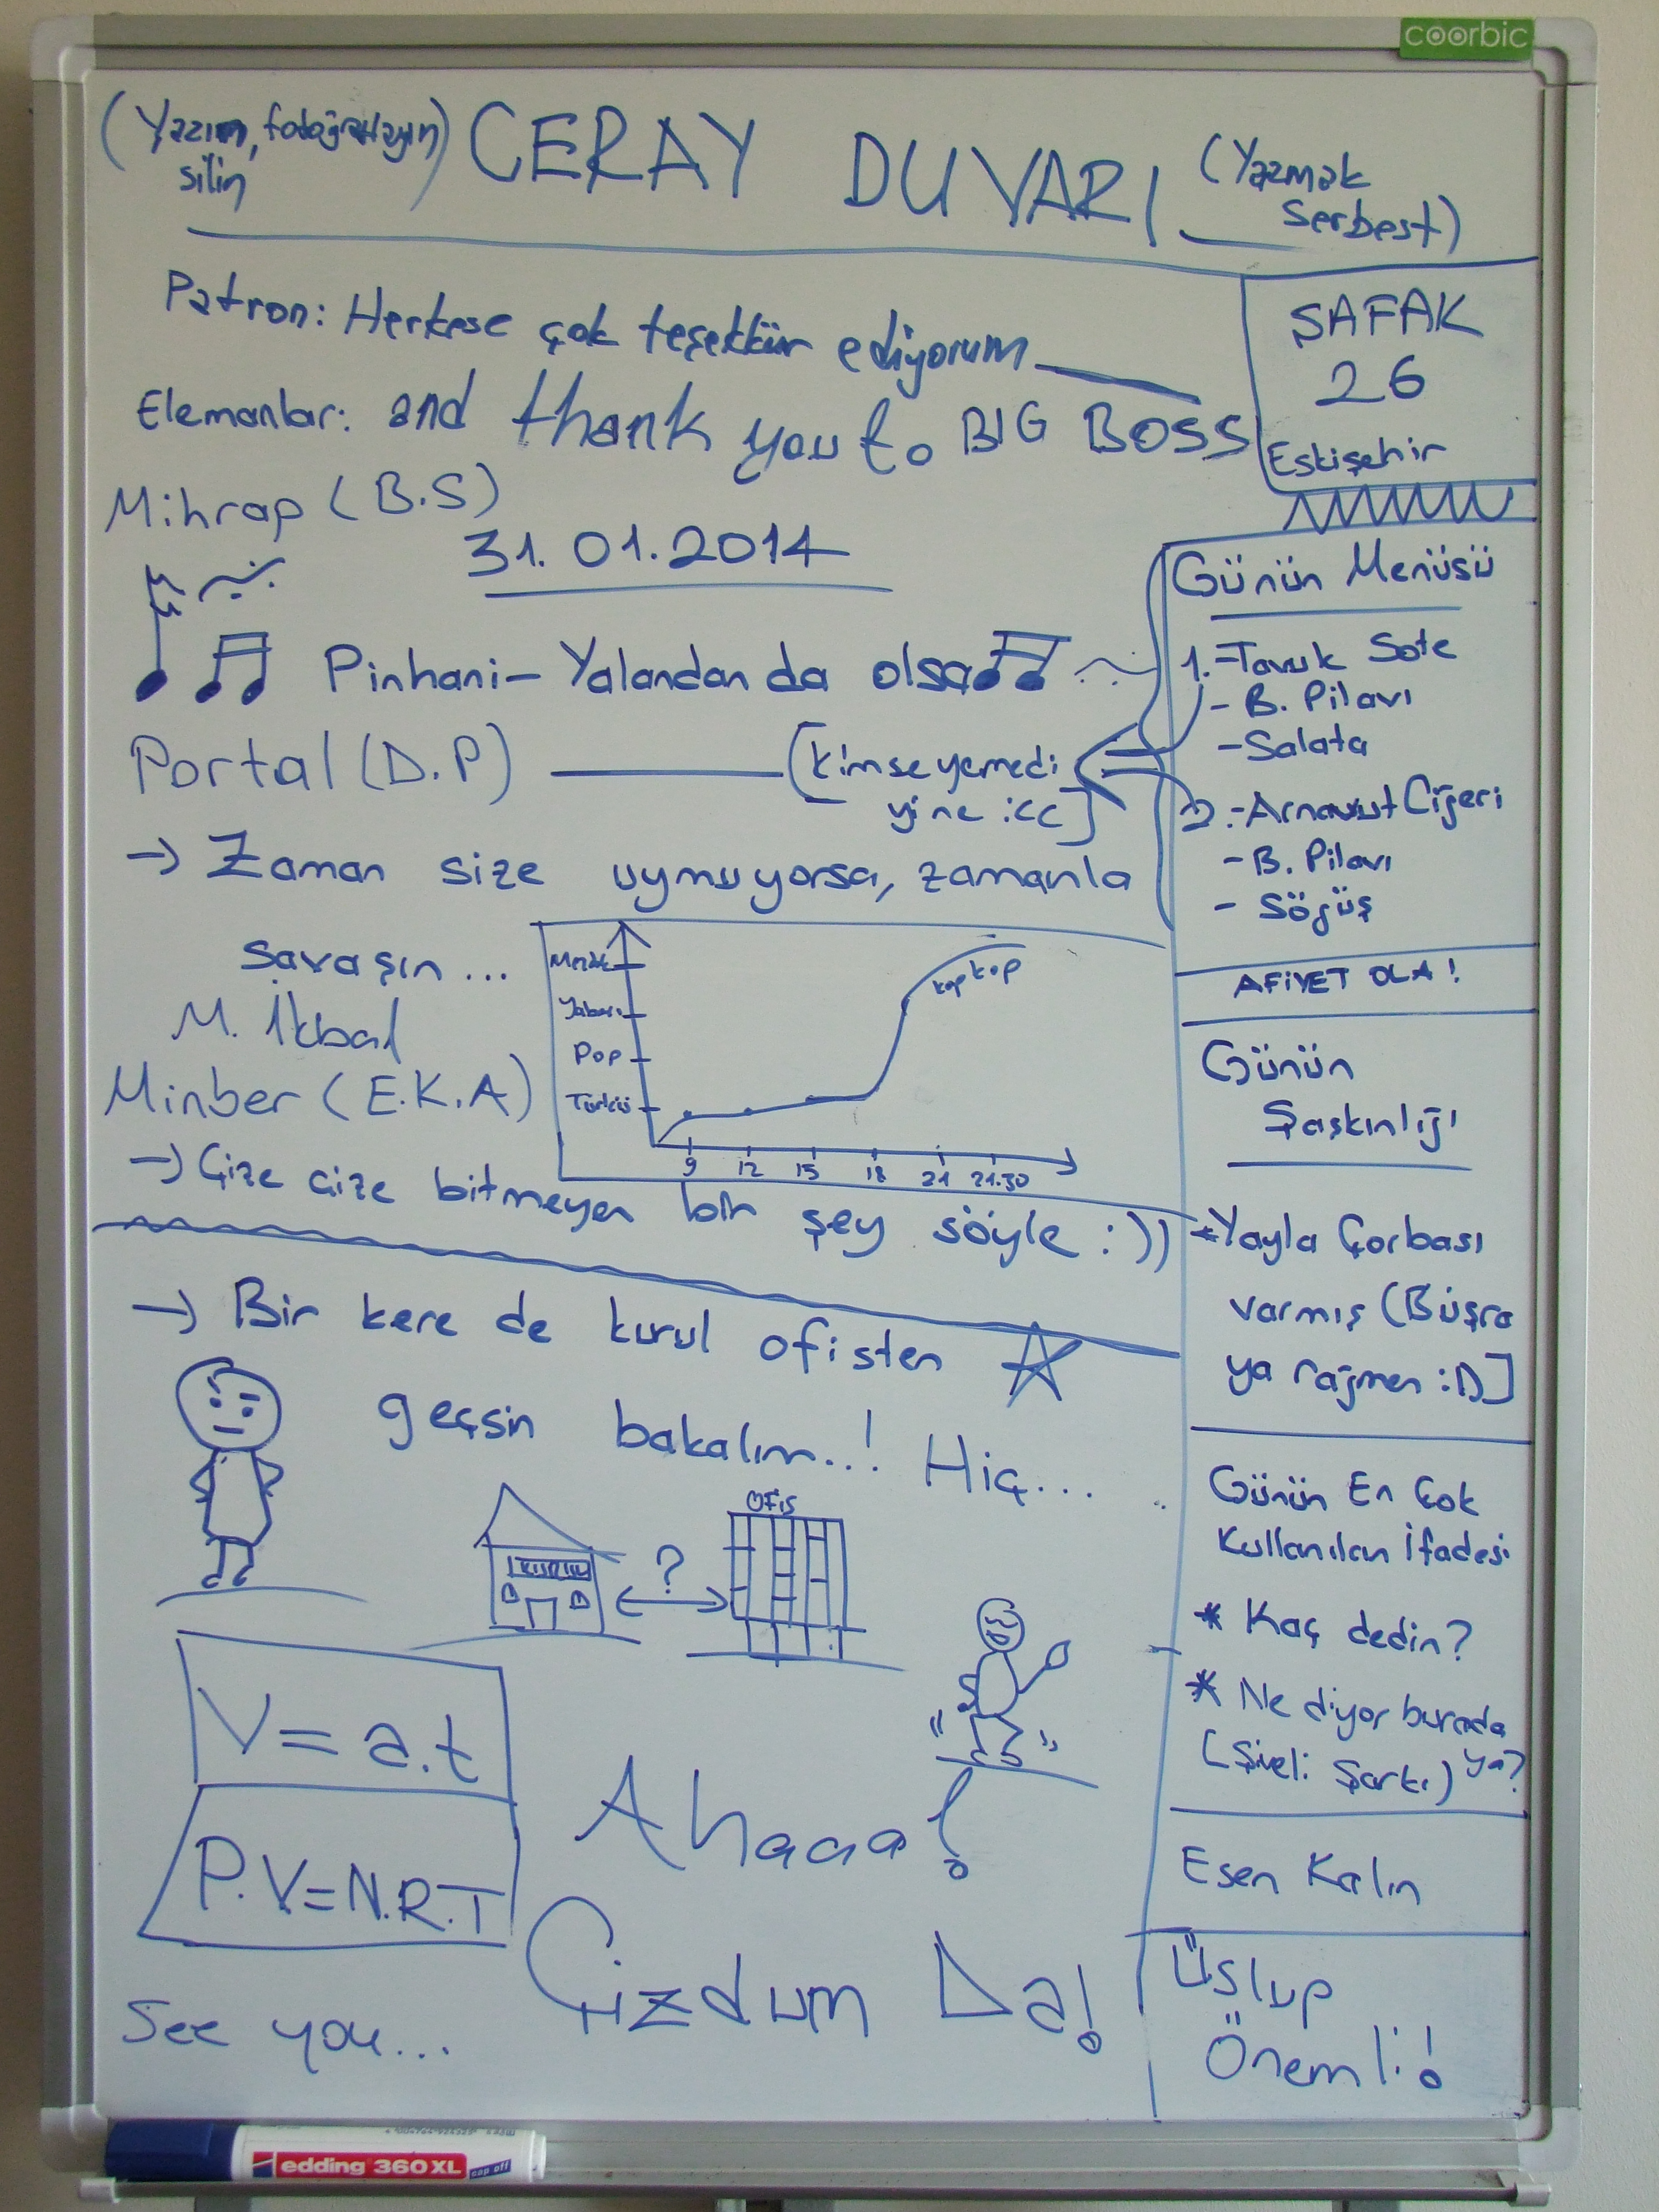 coorbic
(Yazın, fotoğraflayın) CERAY DUVARI (Yazmak
silin serbest)
Patron: Herkese çok teşekkür ediyorum
Elemanlar: and thank you to BIG BOSS
ŞAFAK
26
Eskişehir
Mihrap (B.S)
31.01.2014
Pinhani - Yalandan da olsa
Portal (D.P) (kimse yemedi
yine :(( ]
→ Zaman size uymuyorsa, zamanla
savaşın...
M. İkbal
Minber (E.K.A)
Yabancı
Pop
Türkü
kop kop
9 12 15 18 21 21.30
→ Çize çize bitmeyen bir şey söyle :))
→ Bir kere de kurul ofisten
geçsin bakalım..! Hiç...
OFİS
KURUL
?
V = a.t
P.V=N.R.T
Ahaaa!
Çizdum Da!
See you...
Günün Menüsü
1.-Tavuk Sote
- B. Pilavı
- Salata
2.-Arnavut Ciğeri
- B. Pilavı
- Söğüş
AFİYET OLA!
Günün
Şaşkınlığı
*Yayla Çorbası
varmış (Büşra
ya rağmen :D]
Günün En Çok
Kullanılan İfadesi
* Kaç dedin?
* Ne diyor burada
(Şiveli Şarkı) ya?
Esen Kalın
Üslup
Önemli!
edding 360 XL cap off